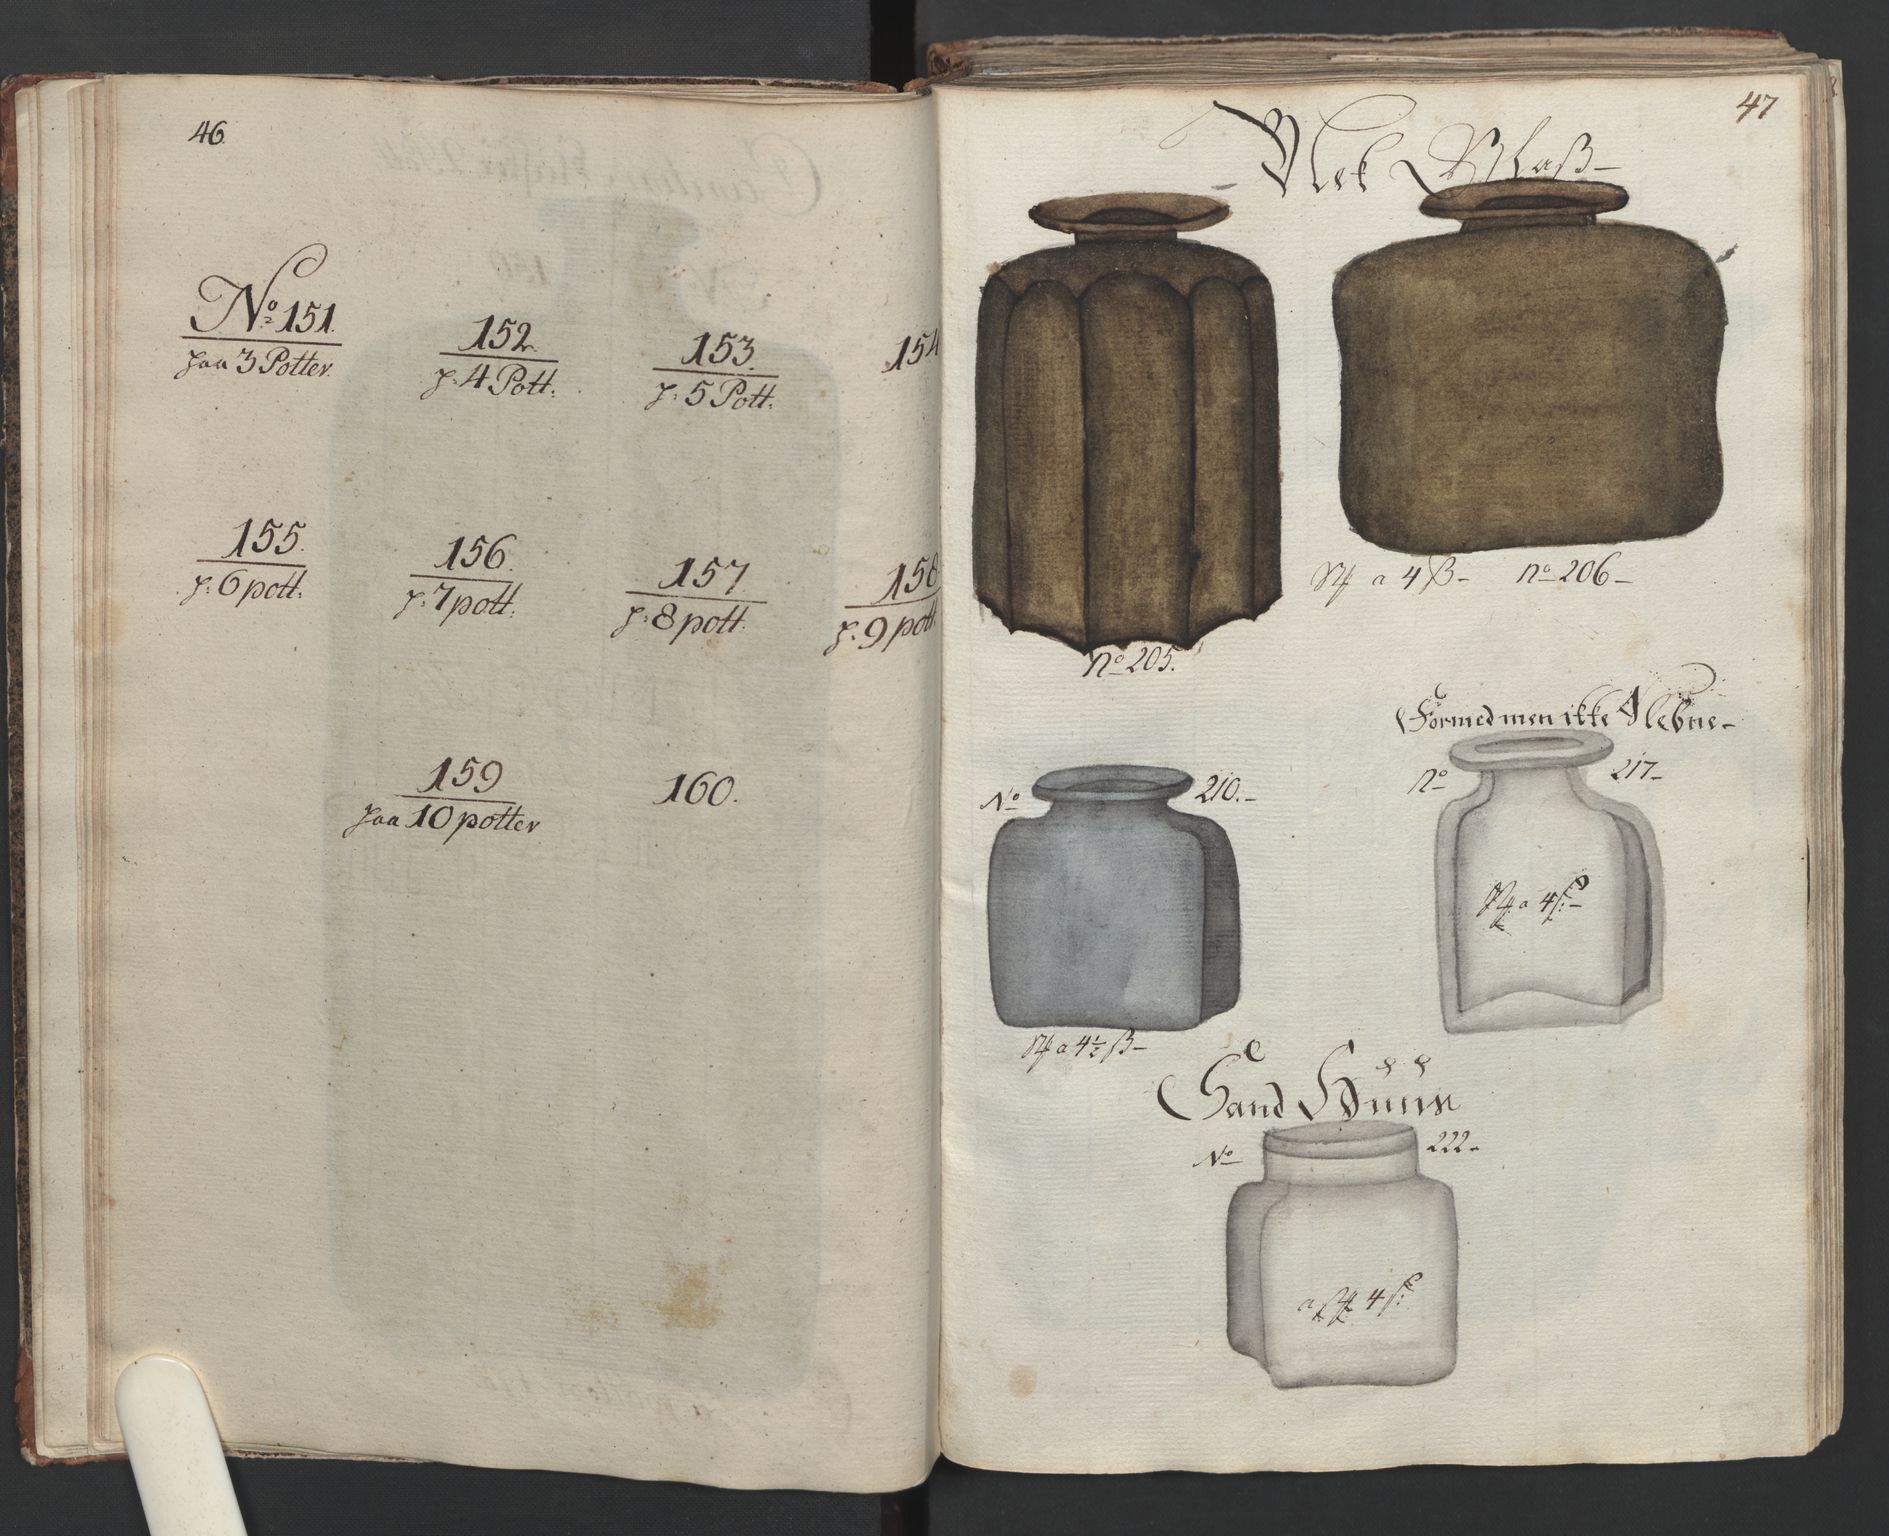 46.
No 151.
paa 3 Potter.
152.
p: 4 Pott:
153.
p: 5 Pott:
154
155.
p: 6 pott:
156.
p: 7 pott:
157
p: 8 pott:
158
p: 9 pott:
159
paa 10 potter
160.
47
Blek Glaß
no 205.
a 4 ß no 206
No 210.
a 4½ ß
Formed men ikke Slebne
no 217
a 4 ß:
Sand Huuse
No 222
a 4 ß: